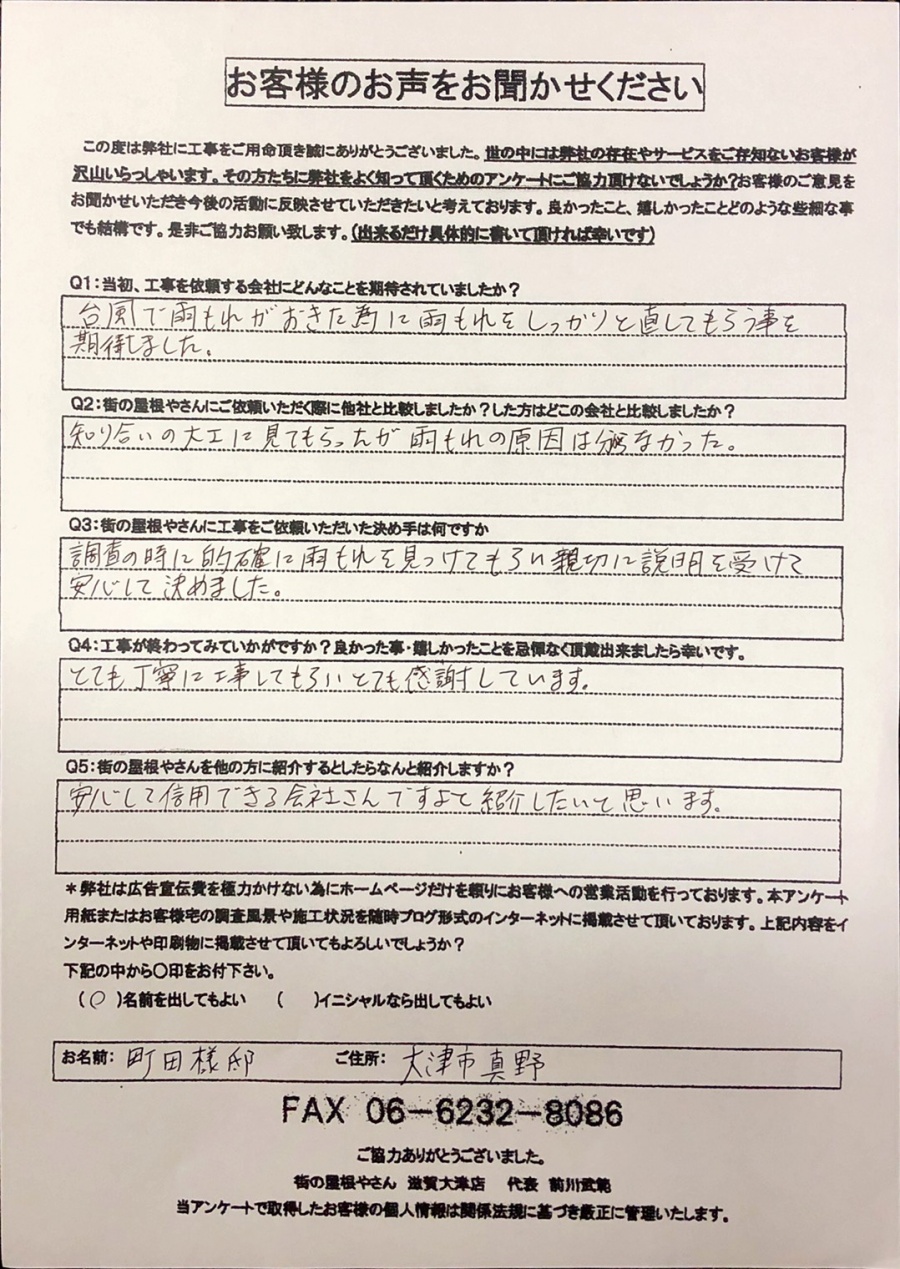 お客様のお声をお聞かせください
この度は弊社に工事をご用命頂き誠にありがとうございました。世の中には弊社の存在やサービスをご存知ないお客様が
沢山いらっしゃいます。その方たちに弊社をよく知って頂くためのアンケートにご協力頂けないでしょうか?お客様のご意見を
お聞かせいただき今後の活動に反映させていただきたいと考えております。良かったこと、嬉しかったことどのような些細な事
でも結構です。是非ご協力お願い致します。(出来るだけ具体的に書いて頂ければ幸いです)
Q1:当初、工事を依頼する会社にどんなことを期待されていましたか?
台風で雨もれがおきた為に雨もれをしっかりと直してもらう事を
期待しました。
Q2:街の屋根やさんにご依頼いただく際に他社と比較しましたか?した方はどこの会社と比較しましたか?
知り合いの大工に見てもらったが雨もれの原因は分らなかった。
Q3:街の屋根やさんに工事をご依頼いただいた決め手は何ですか
調査の時に的確に雨もれを見つけてもらい親切に説明を受けて
安心して決めました。
Q4:工事が終わってみていかがですか?良かった事・嬉しかったことを忌憚なく頂戴出来ましたら幸いです。
とても丁寧に工事してもらいとても感謝しています。
Q5:街の屋根やさんを他の方に紹介するとしたらなんと紹介しますか?
安心して信用できる会社さんですよと紹介したいと思います。
*弊社は広告宣伝費を極力かけない為にホームページだけを頼りにお客様への営業活動を行っております。本アンケート
用紙またはお客様宅の調査風景や施工状況を随時ブログ形式のインターネットに掲載させて頂いております。上記内容をイ
ンターネットや印刷物に掲載させて頂いてもよろしいでしょうか?
下記の中から〇印をお付下さい。
(○)名前を出してもよい ( )イニシャルなら出してもよい
お名前: 町田様邸 ご住所: 大津市真野
FAX 06-6232-8086
ご協力ありがとうございました。
街の屋根やさん 滋賀大津店 代表 前川武範
当アンケートで取得したお客様の個人情報は関係法規に基づき厳正に管理いたします。